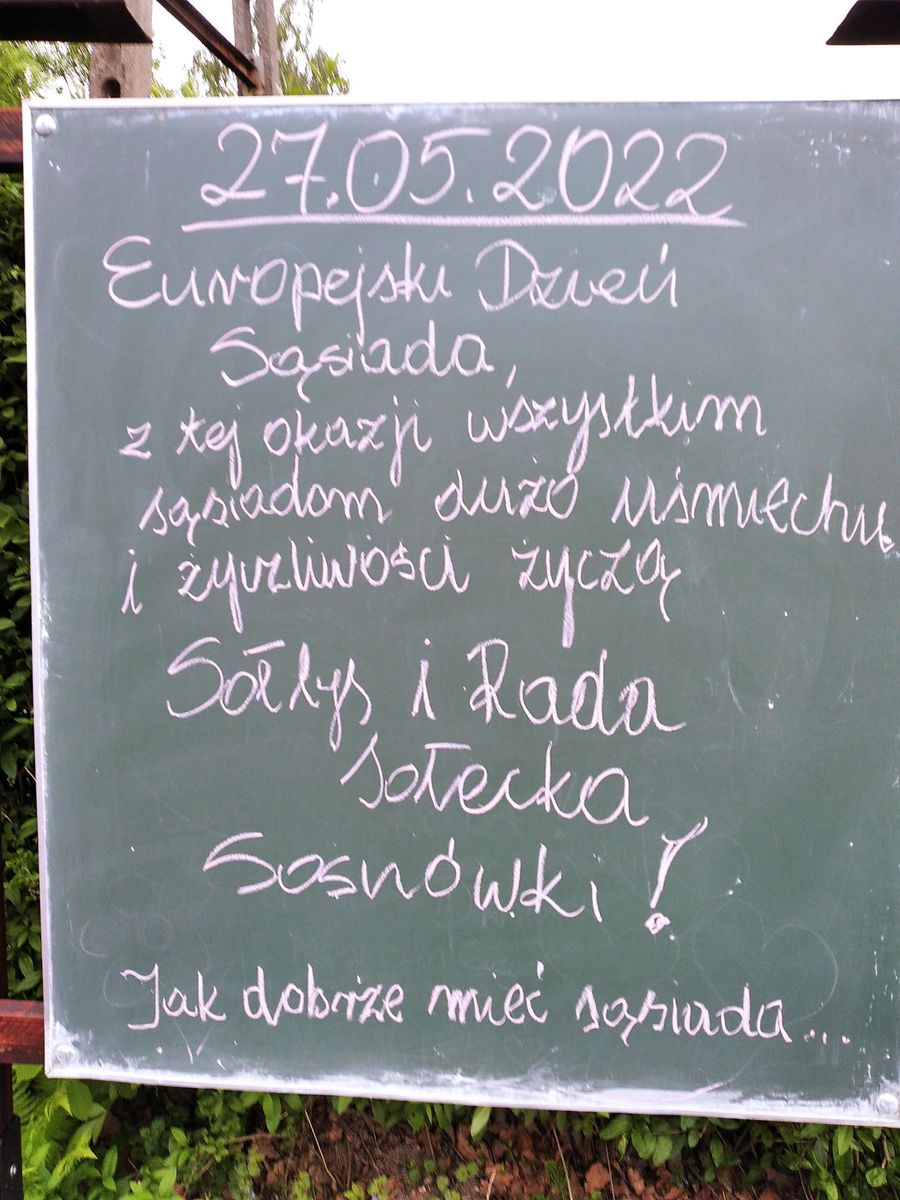 27.05.2022
Europejski Dzień
Sąsiada,
z tej okazji wszystkim
sąsiadom dużo uśmiechu
i życzliwości życzą
Sołtys i Rada
sołecka
Sosnówki!
Jak dobrze mieć sąsiada...